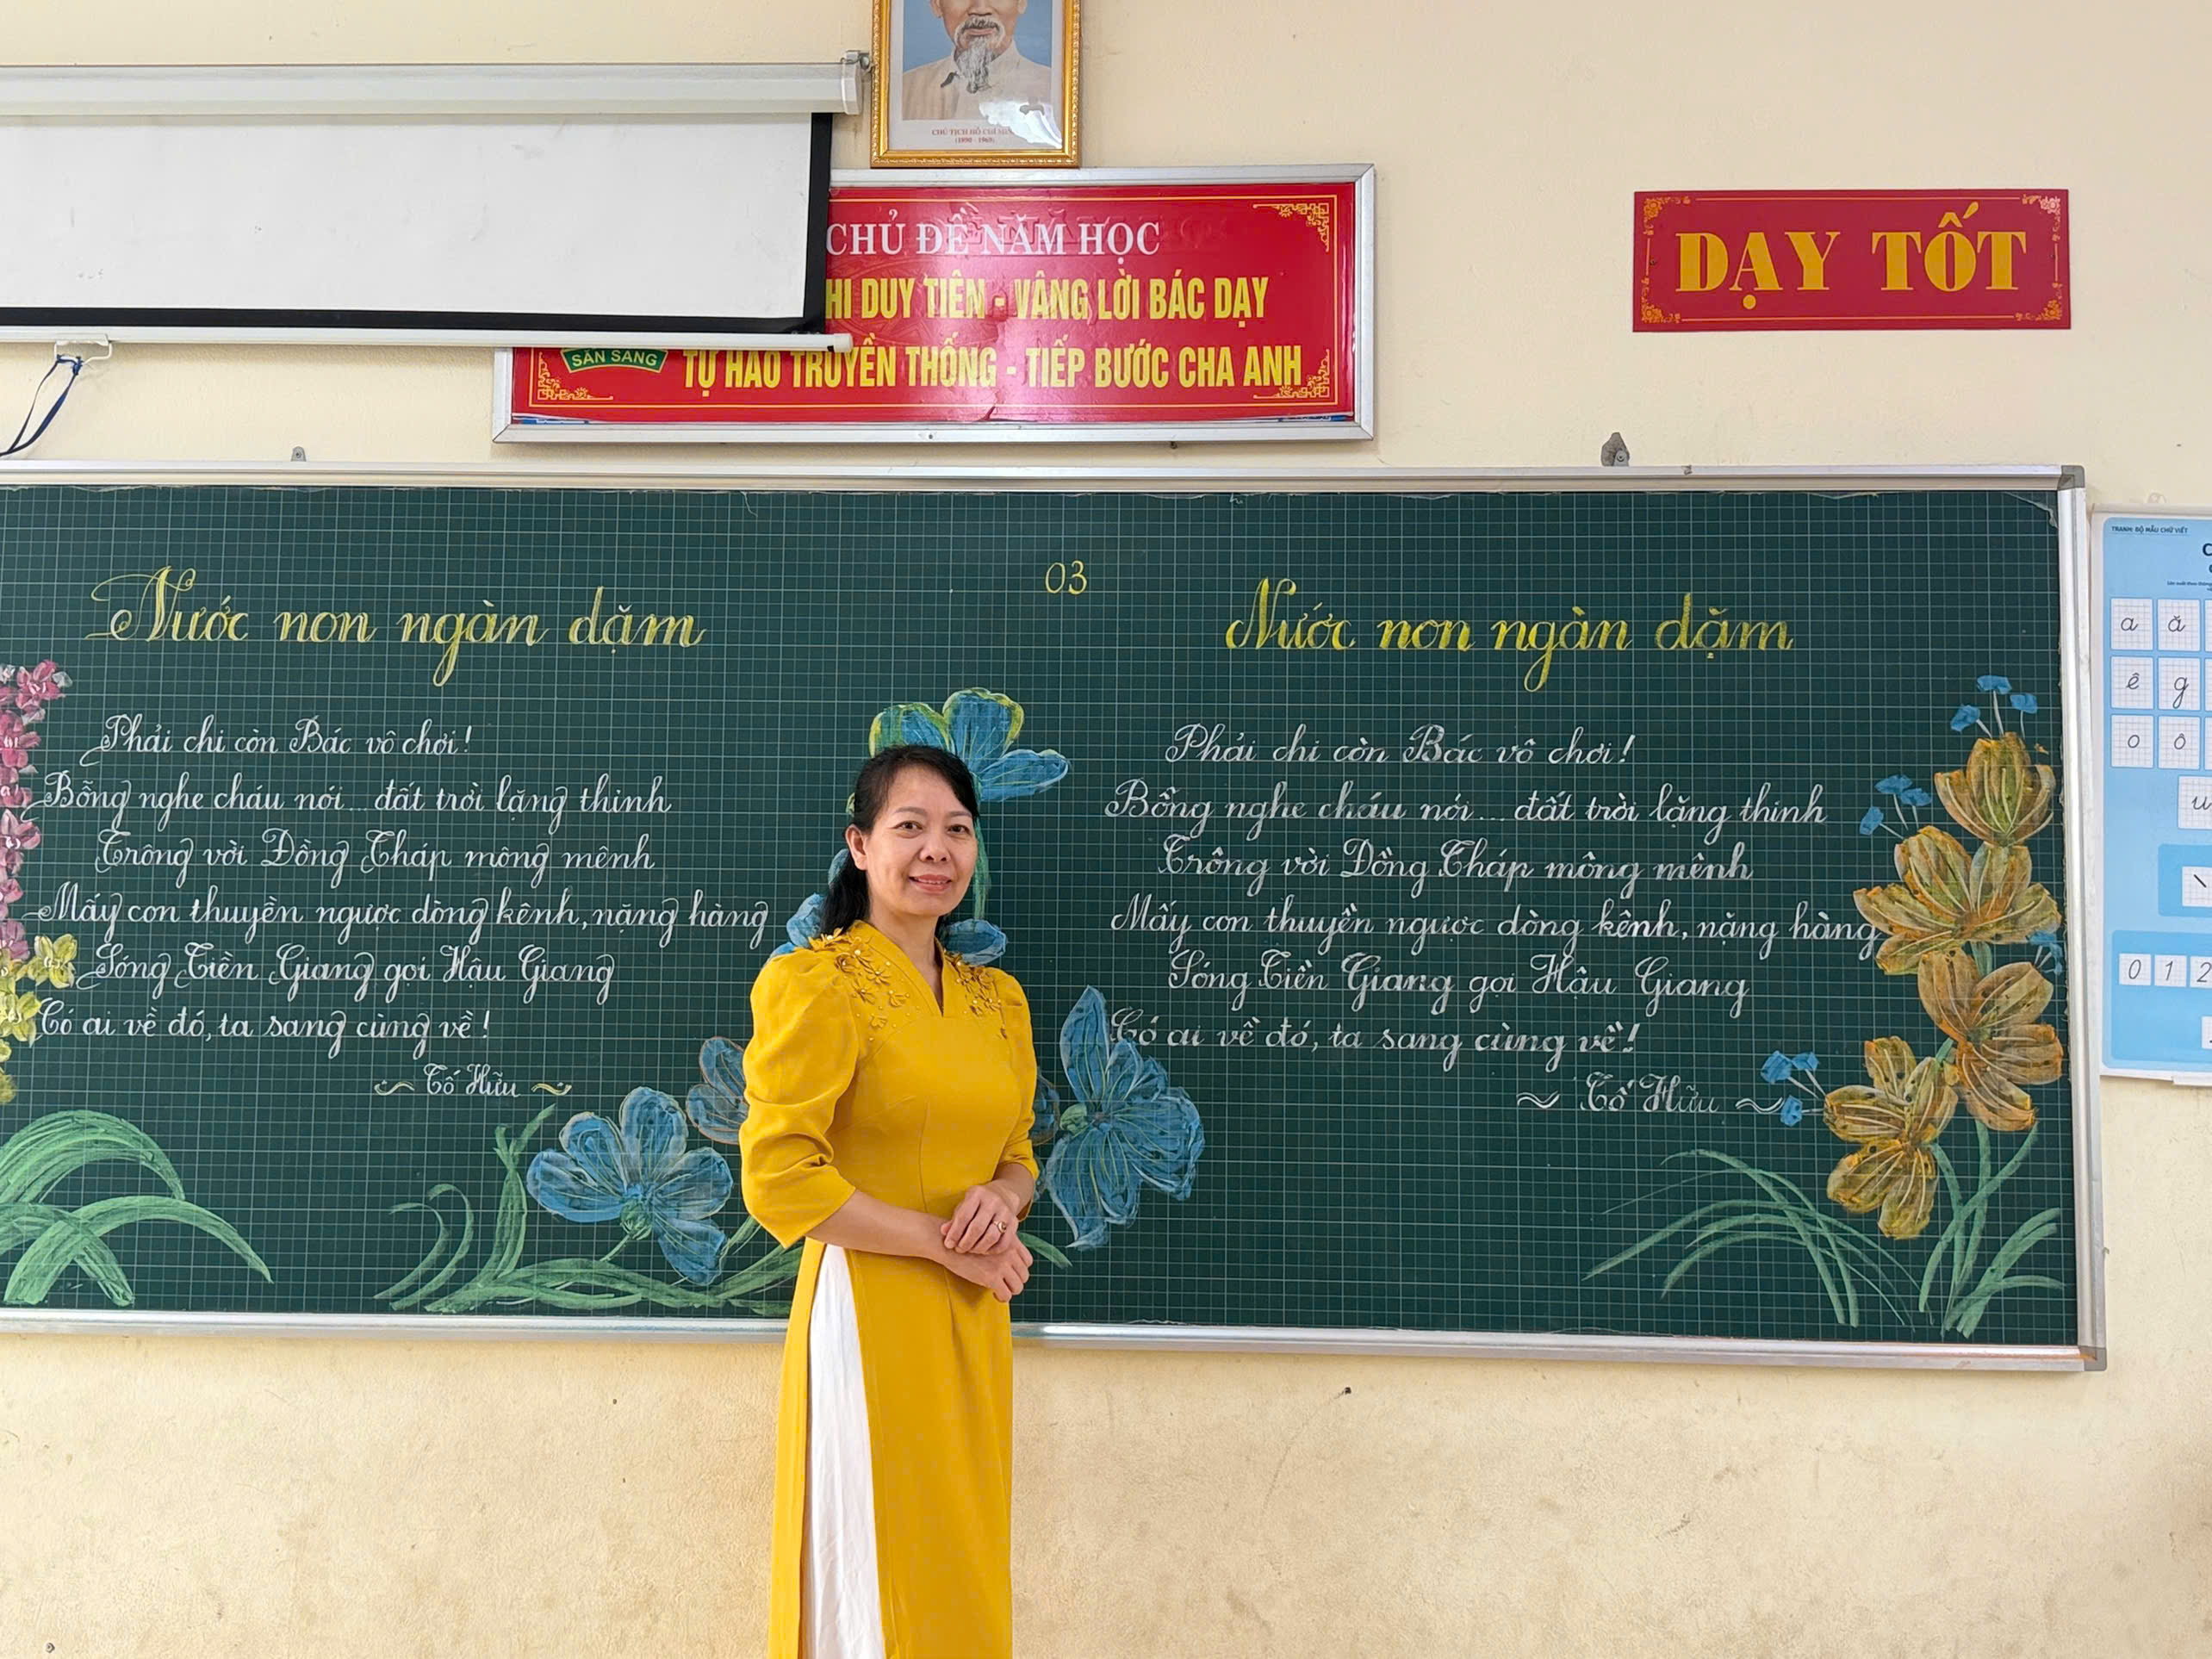 CHỦ TỊCH HỒ CHÍ MIN
(1890 - 1969)
CHỦ ĐỀ NĂM HỌC
HI DUY TIÊN - VÂNG LỜI BÁC DẠY
SẴN SÀNG
TỰ HÀO TRUYỀN THỐNG - TIẾP BƯỚC CHA ANH
DẠY TỐT
03
Nước non ngàn dặm
Phải chi còn Bác vô chơi!
Bỗng nghe cháu nói... đất trời lặng thinh
Trông vời Đồng Tháp mông mênh
Mấy con thuyền ngược dòng kênh, nặng hàng
Sóng Tiền Giang gọi Hậu Giang
Có ai về đó, ta sang cùng về!
~ Tố Hữu ~
Nước non ngàn dặm
Phải chi còn Bác vô chơi!
Bỗng nghe cháu nói... đất trời lặng thinh
Trông vời Đồng Tháp mông mênh
Mấy con thuyền ngược dòng kênh, nặng hàng
Sóng Tiền Giang gọi Hậu Giang
Có ai về đó, ta sang cùng về!
~ Tố Hữu ~
TRANH: BỘ MẪU CHỮ VIẾT
C
a ă
ê g
o ô
u
0 1 2